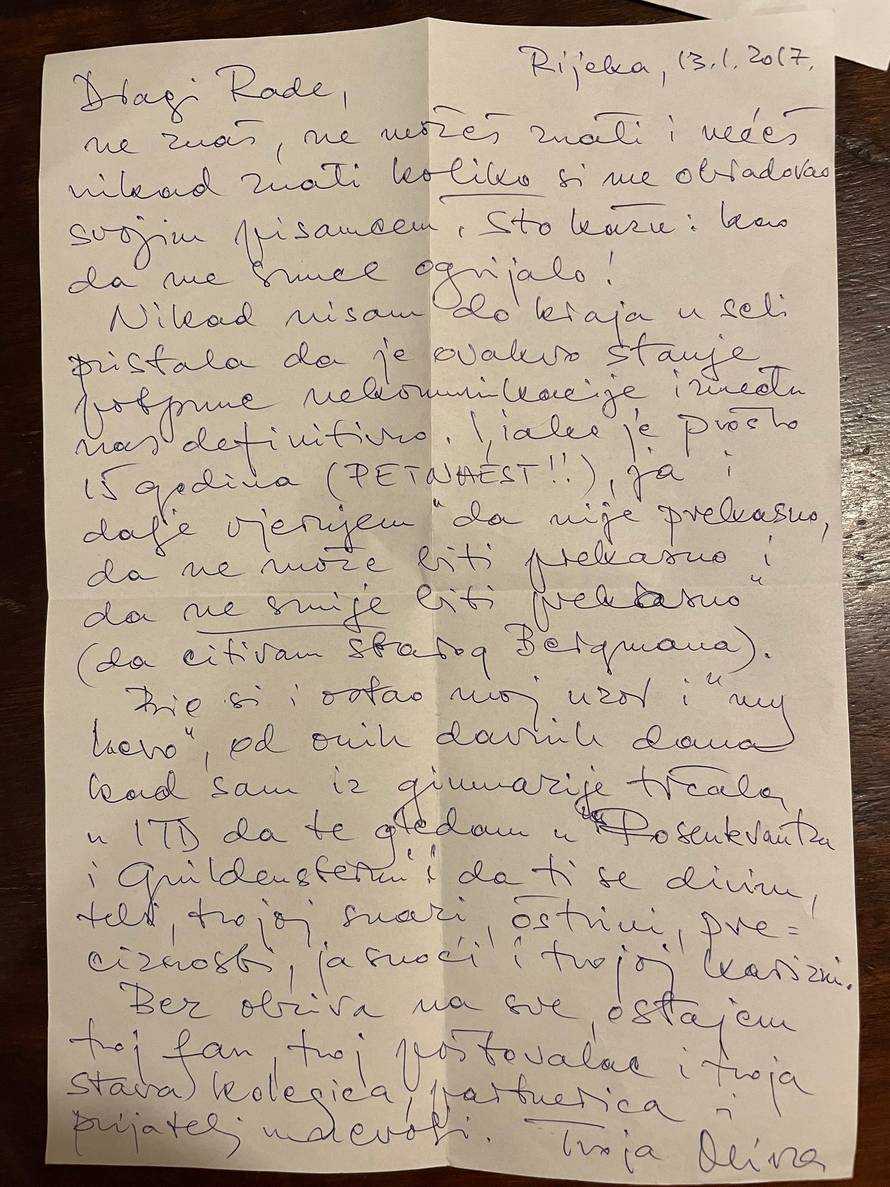 Rijeka, 13.1.2017.
Dragi Rade,
ne znaš, ne možeš znati i nećeš
nikad znati koliko si me obradovao
svojim pisamcem. Što kažu: kao
da me sunce ogrijalo!
Nikad nisam do kraja u sebi
pristala da je ovakvo stanje
potpune nekomunikacije između
nas definitivno. I, iako je prošlo
15 godina (PETNAEST!!), ja i
dalje vjerujem "da nije prekasno,
da ne može biti prekasno i
da ne smije biti prekasno"
(da citiram starog Bergmana).
Bio si i ostao moj uzor i "my
hero", od onih davnih dana
kad sam iz gimnazije trčala
u ITD da te gledam u "Rosenkrantza
i Guildensterna" i da ti se divim,
tebi, tvojoj snazi, oštrini, pre=
ciznosti, jasnoći i tvojoj karizmi.
Bez obzira na sve, ostajem
tvoj fan, tvoj poštovalac i tvoja
stara kolegica, partnerica i
prijatelj u nevolji. Tvoja